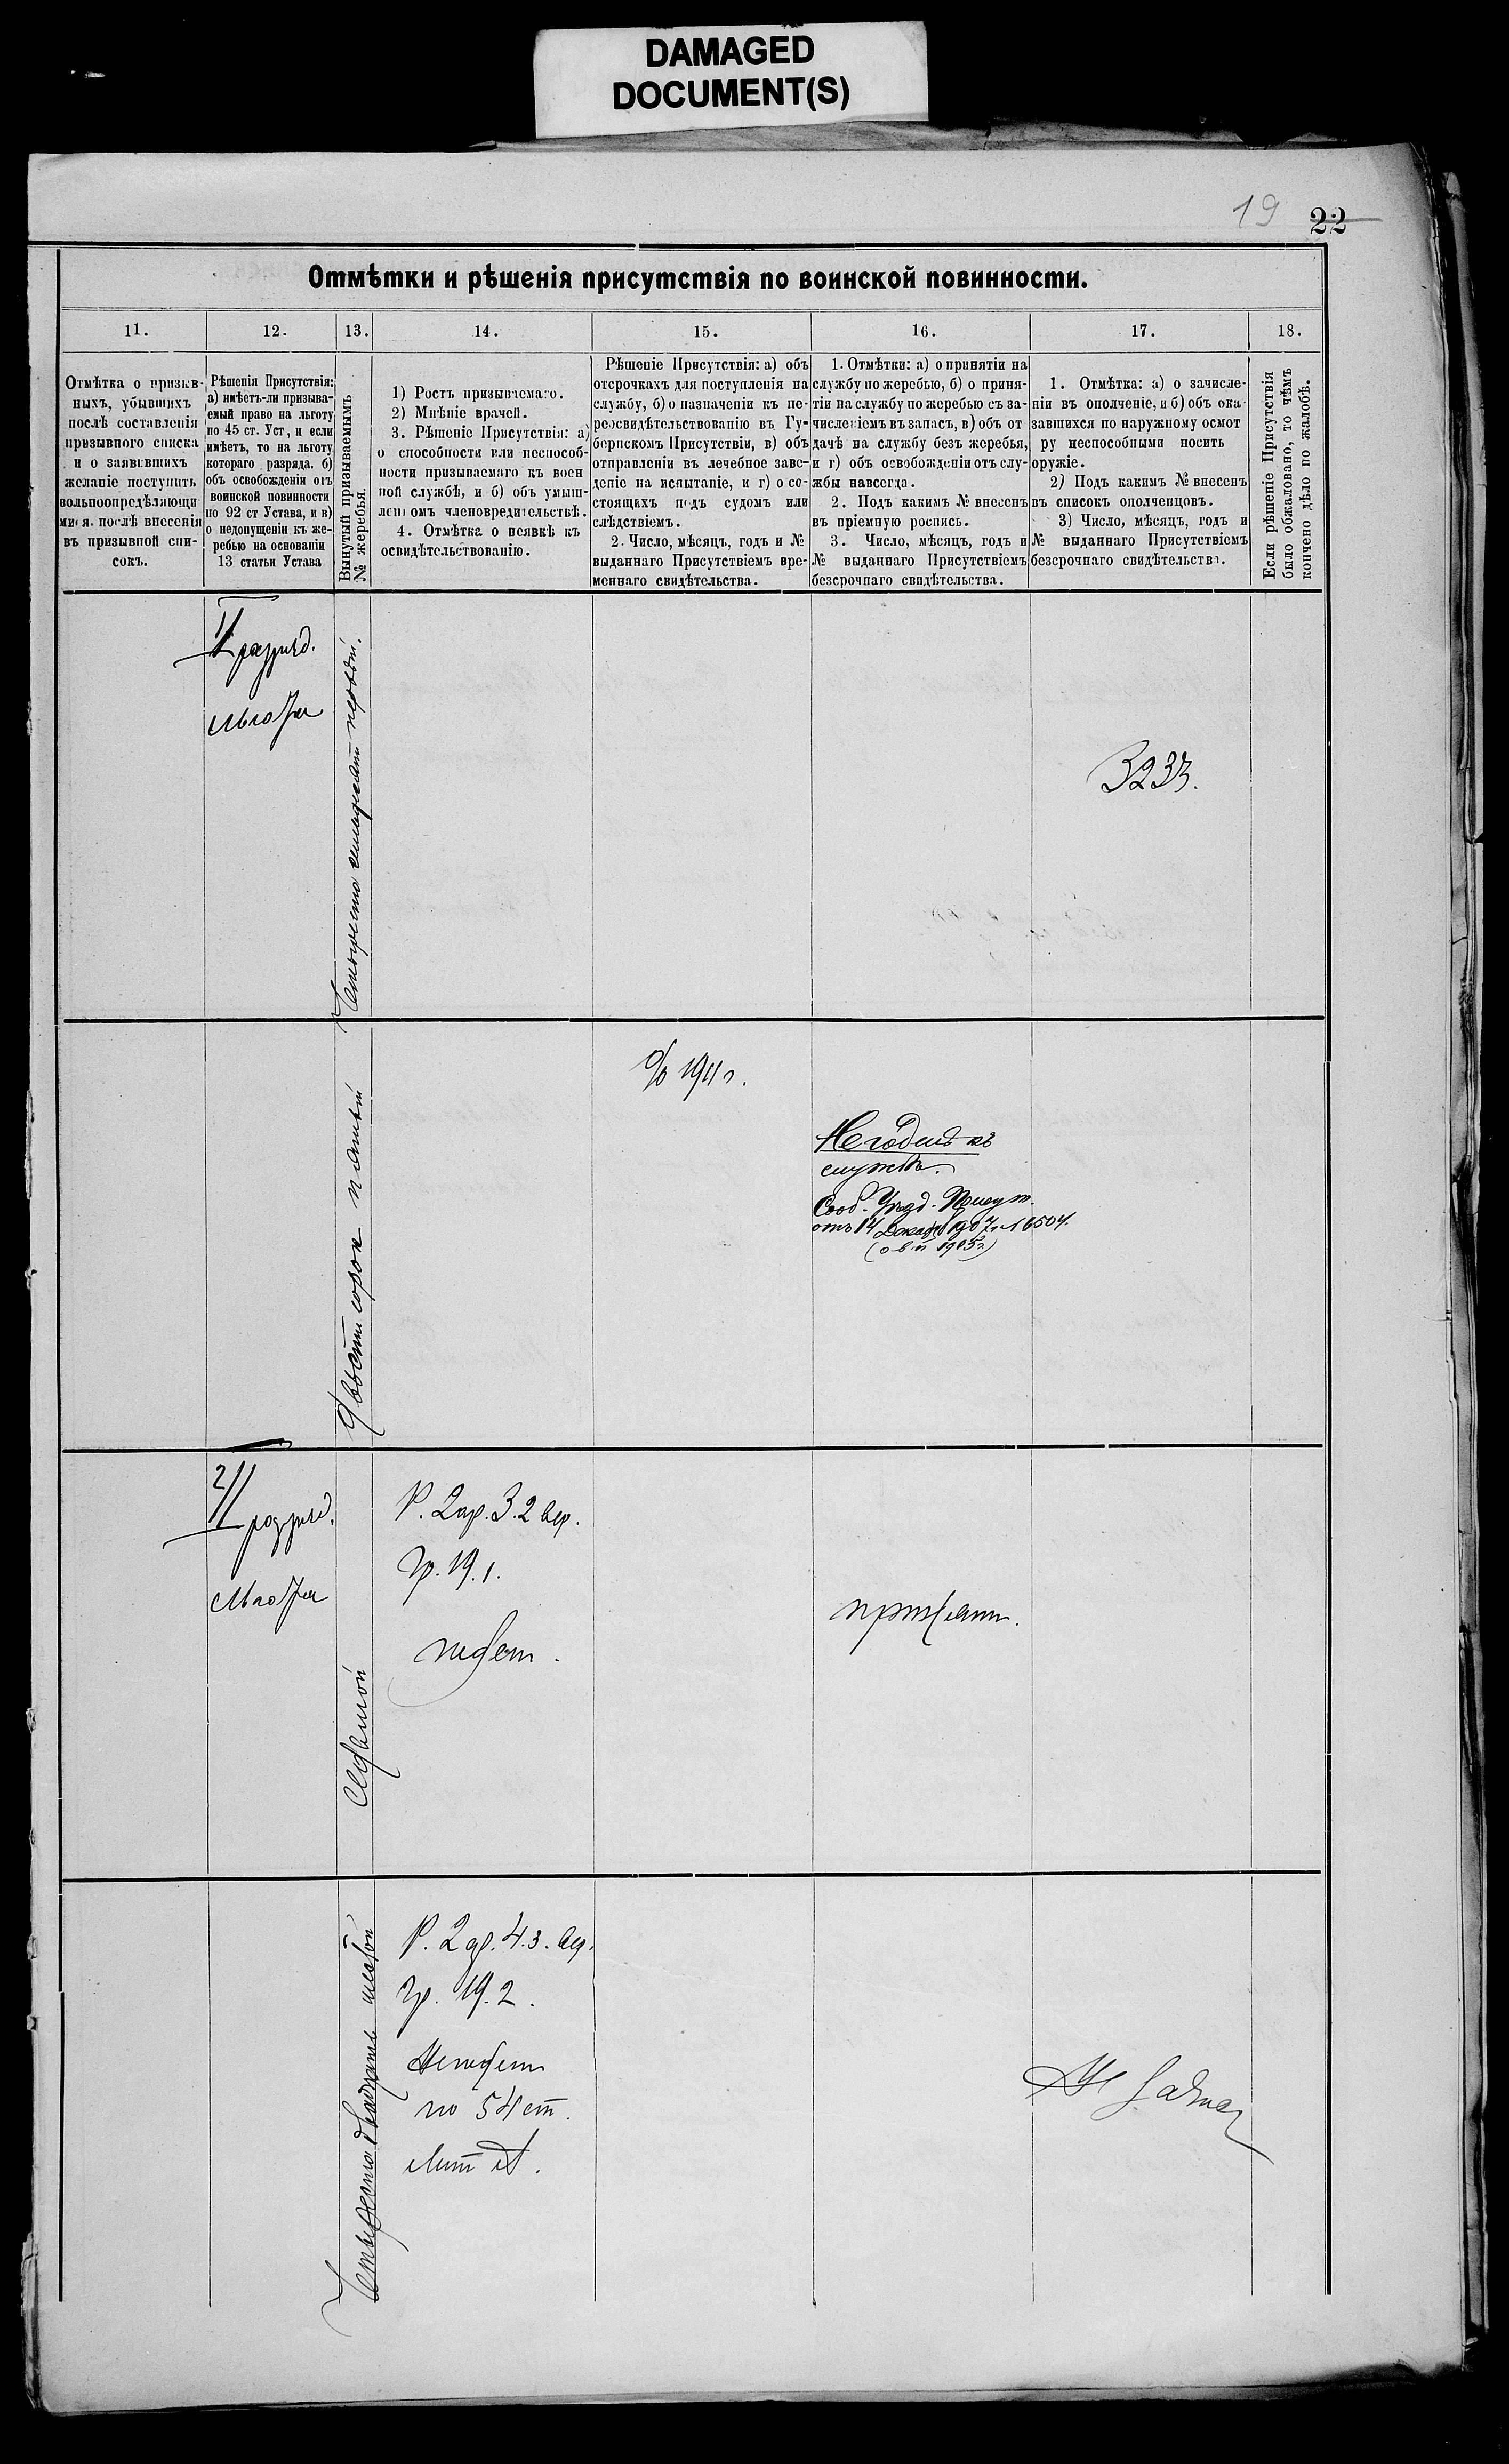 DAMAGED
DOCUMENT(S)
19 22
Отмѣтки и рѣшенія присутствія по воинской повинности.
11. 12. 13. 14. 15. 16. 17. 18.
Отмѣтка о призыв-
ныхъ, убывшихъ
послѣ составленія
призывного списка
и о заявившихъ
желаніе поступить
вольноопредѣляющи
мися. послѣ внесенія
въ призывной спи-
сокъ.
Рѣшенія Присутствія:
а) имѣетъ-ли призыва-
емый право на льготу
по 45 ст. Уст, и если
имѣетъ, то на льготу
котораго разряда. б)
объ освобожденіи отъ
воинской повинности
по 92 ст Устава, и в)
о недопущеніи къ же-
ребью на основаніи
13 статьи Устава
Вынутый призываемымъ
№ жеребья.
1) Ростъ призываемаго.
2) Мнѣніе врачей.
3. Рѣшеніе Присутствія: а)
о способности или неспособ-
ности призываемаго къ воен
ной службѣ, и б) объ умыш-
леномъ членовредительствѣ.
4. Отмѣтка о неявкѣ къ
освидѣтельствованію.
Рѣшеніе Присутствія: а) объ
отсрочкахъ для поступленія на
службу, б) о назначеніи къ пе-
реосвидѣтельствованію въ Гу-
бернскомъ Присутствіи, в) объ
отправленіи въ лечебное заве-
деніе на испытаніе, и г) о со-
стоящихъ подъ судомъ или
слѣдствіемъ.
2. Число, мѣсяцъ, годъ и №
выданнаго Присутствіемъ вре-
меннаго свидѣтельства.
1. Отмѣтки: а) о принятіи на
службу по жеребью, б) о приня-
тіи на службу по жеребью съ за-
численіемъ въ запасъ, в) объ от
дачѣ на службу безъ жеребья,
и г) объ освобожденіи отъ слу-
жбы навсегда.
2. Подъ какимъ № внесенъ
въ пріемную роспись.
3. Число, мѣсяцъ, годъ и
№ выданнаго Присутствіемъ
безсрочнаго свидѣтельства.
1. Отмѣтка: а) о зачисле-
ніи въ ополченіе, и б) объ ока-
завшихся по наружному осмот
ру неспособными носить
оружіе.
2) Подъ какимъ № внесенъ
въ списокъ ополченцовъ.
3) Число, мѣсяцъ, годъ и
№ выданнаго Присутствіемъ
безсрочнаго свидѣтельства.
Если рѣшеніе Присутствія
было обжаловано, то чѣмъ
кончено дѣло по жалобѣ.
разряд.
льгота
Четыреста семьдесят первый.
3233.
Двѣсти сорок пятый
о/о 1911 г.
Не годенъ къ
службѣ.
Сооб. Уѣзд. Присут.
отъ 14 Декабр 1907 г. № 6504.
II разряд.
льгота
Седьмой
Р. 2 ар. 3.2 вер.
гр. 19.1.
годен.
принят.
Четыреста двадцать шестой
Р. 2 ар. 4.3. вер.
гр. 19.2.
Негоден
по 54 ст.
лит А.